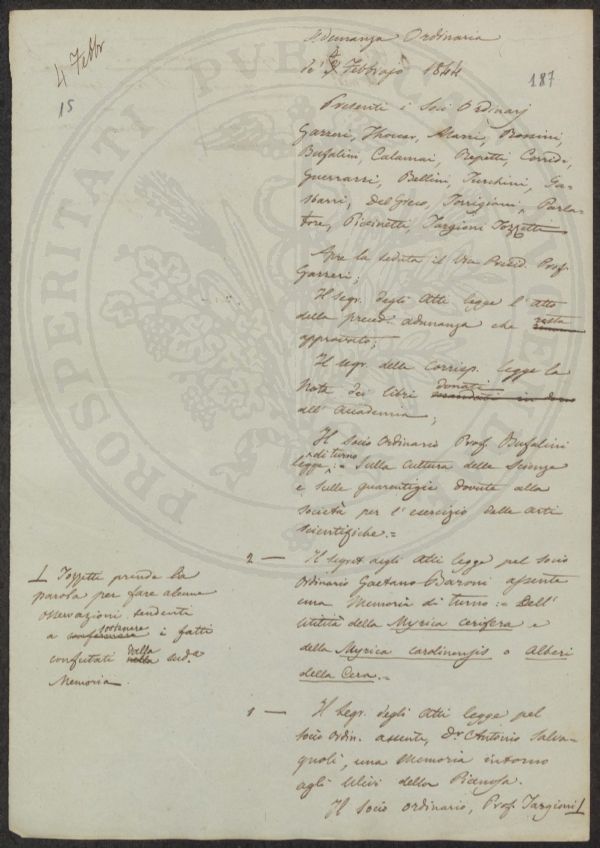 4 Febbr
15
187
Adunanza Ordinaria
de' 4 Febbrajo 1844
Presenti i Soci Ordinarj
Gazzeri, Thouar, Marri, Bonsini,
Bufalini, Calamai, Repetti, Corridi,
Guerrazzi, Bellini, Turchini, Ga-
sbarri, Del Greco, Torrigiani, Parla-
tore, Piccinetti, Targioni Tozzetti
Apre la seduta il Vice Presid. Prof.
Gazzeri;
Il segr. degli Atti legge l'atto
della preced. adunanza che resta
approvato;
Il segr. della Corrisp. legge la
Nota dei libri donati
all'Accademia;
Il socio Ordinario Prof. Bufalini
di turno
legge := Sulla Cultura delle Scienze
e sulle guarentigie dovute alla
società per l'esercizio delle arti
scientifiche.=
2 — Il segret. degli Atti legge pel socio
Ordinario Gaetano Baroni assente
una Memoria di turno := Dell'
utilità della Myrica cerifera e
della Myrica carolinensis o Alberi
della Cera.=
1 — Il Segr. degli Atti legge pel
socio Ordin. assente, Dr. Antonio Salva-
gnoli, una Memoria intorno
agli Ulivi della Pianosa.
Il socio ordinario, Prof. Targioni
Tozzetti prende la
parola per fare alcune
osservazioni tendenti
a sostenere i fatti
confutati dalla sud.a
Memoria.
PROSPERITATI PVBLICAE